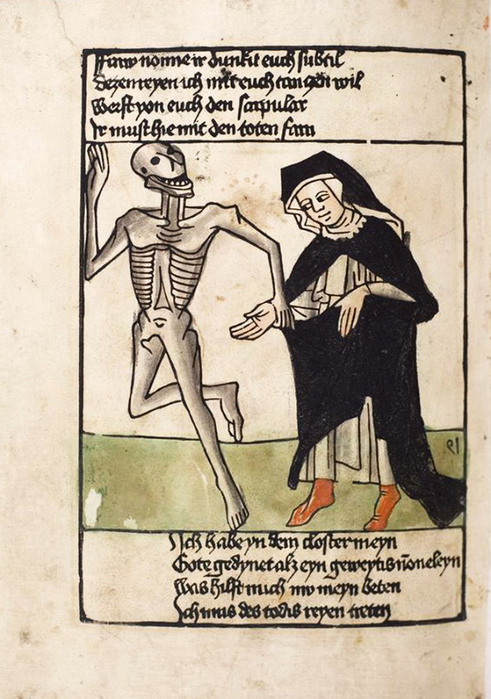 Fraw nonne ir dunkit euch subtil
Dezen reyen ich mit euch tanczen wil
Werft von euch den scapular
Ir must hie mit den toten farn
Ich habe yn dem closter meyn
Gote gedynet alz eyn geweytis nonneleyn
Was hilft mich nw meyn beten
Ich mus des todis reyen treten